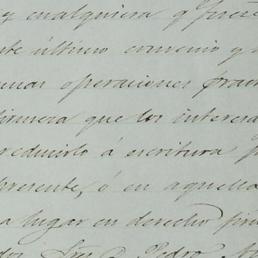 y cualquiera q. fuere
te último convenio y
unas operaciones prac
firmeza que los interesa
reducirlo á escritura p
presente, ó en aquella
a lugar en derecho fir
dos Sres D. Pedro